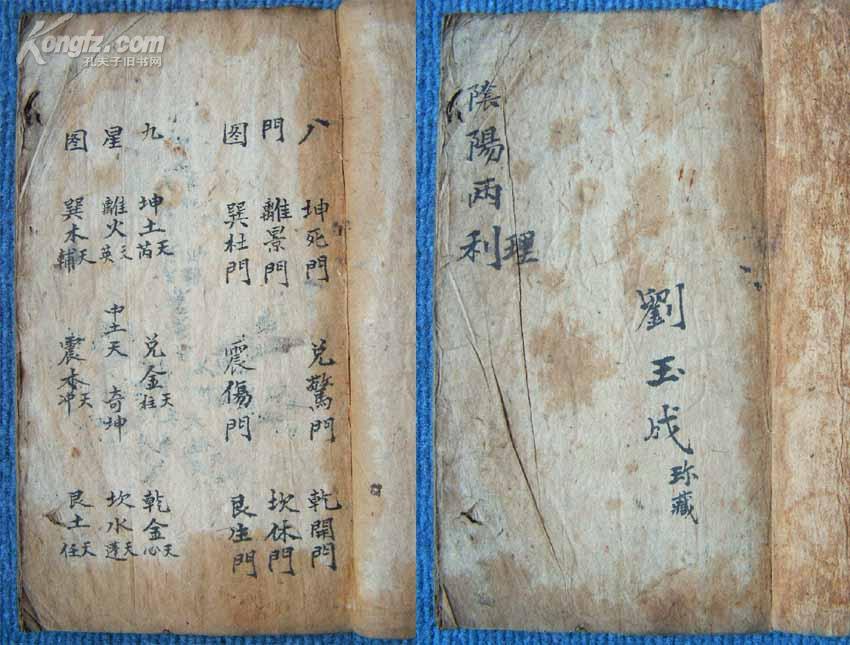 Kongfz.com
孔夫子旧书网
八 坤死門 兑驚門 乾開門
門 離景門 坎休門
图 巽杜門 震傷門 艮生門
九 坤土天芮 兑金天柱 乾金天心
星 離火天英 中土天 奇坤 坎水天蓬
图 巽木天輔 震木天冲 艮土天任
陰陽两利
理
劉玉成珍藏